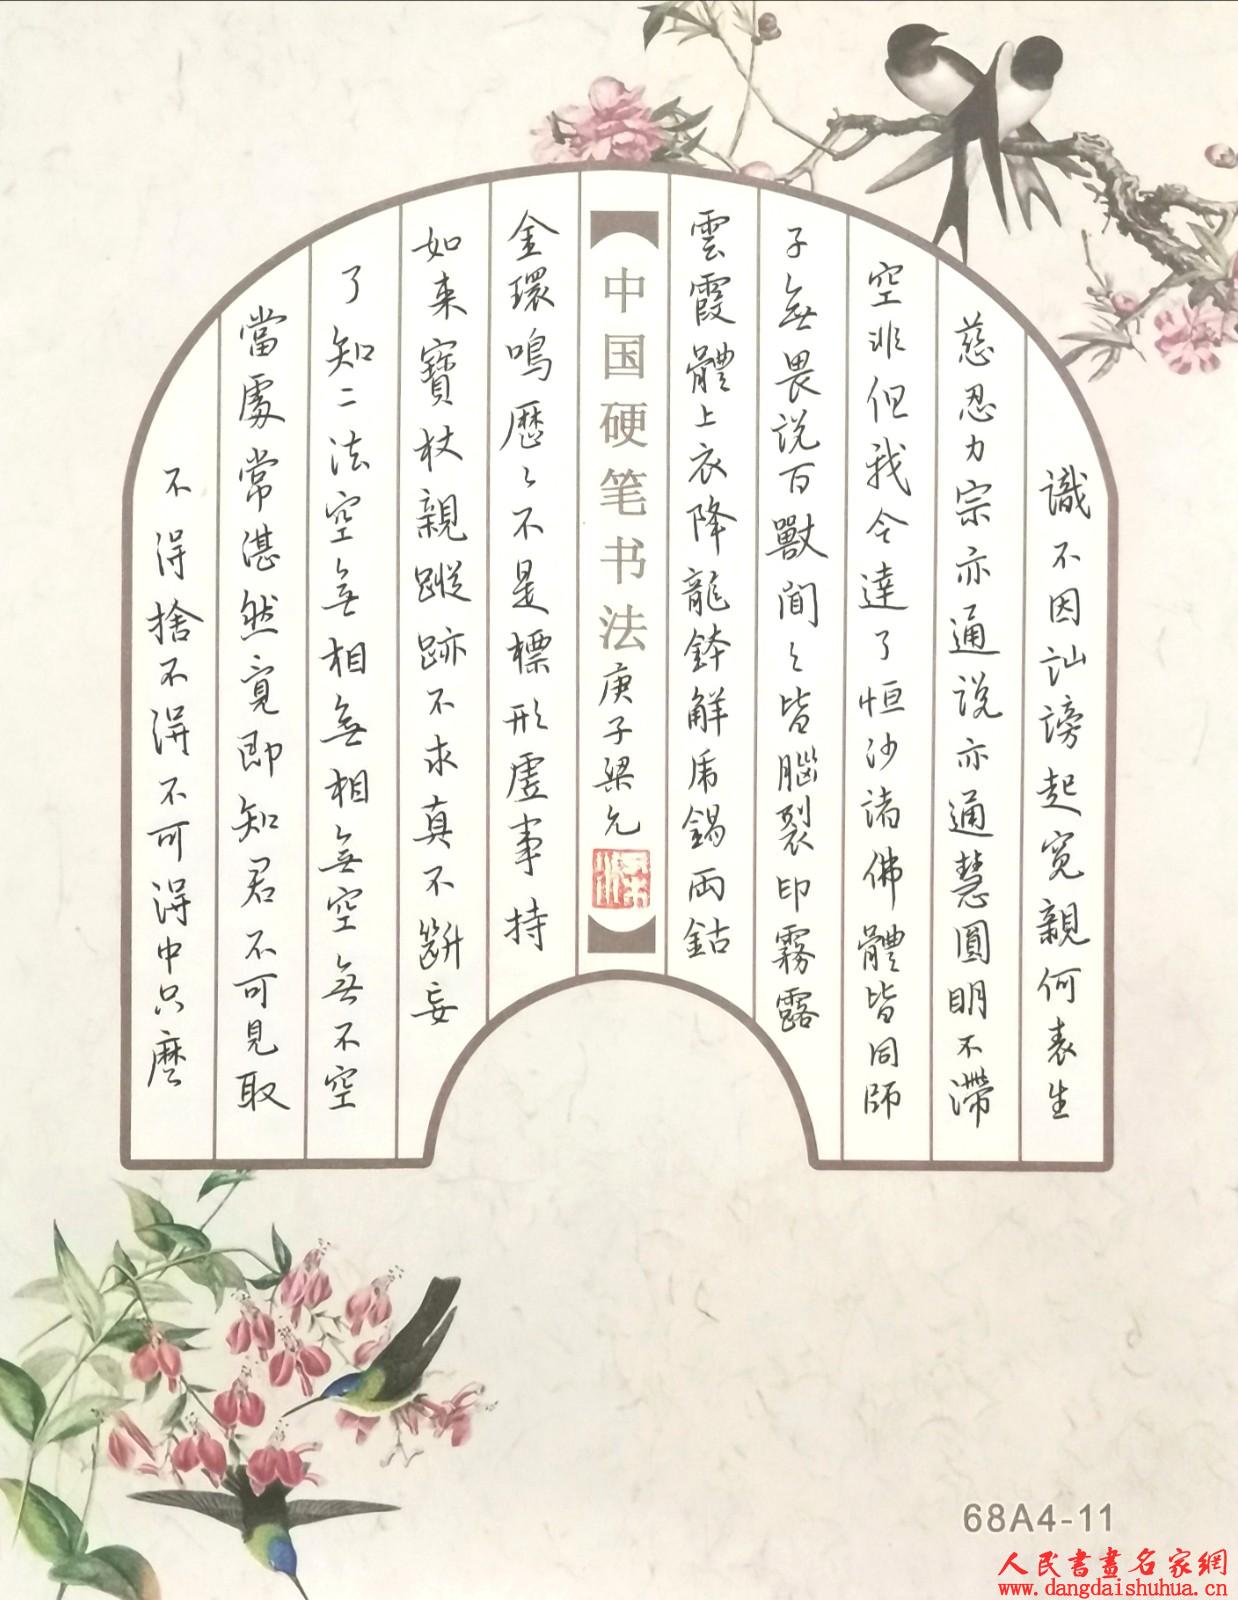 識不因訕謗起冤親何表生
慈忍力宗亦通說亦通慧圓明不滯
空非但我今達了恒沙諸佛體皆同師
子無畏說百獸聞々皆腦裂印霧露
雲霞體上衣降龍鉢解虎錫兩鈷
中国硬笔书法
庚子梁允
金環鳴歷々不是標形虛事持
如來寶杖親蹤跡不求真不斷妄
了知二法空無相無相無空無不空
當處常湛然覓即知君不可見取
不得捨不得不可得中只麼
68A4-11
人民書畫名家網
www.dangdaishuhua.cn